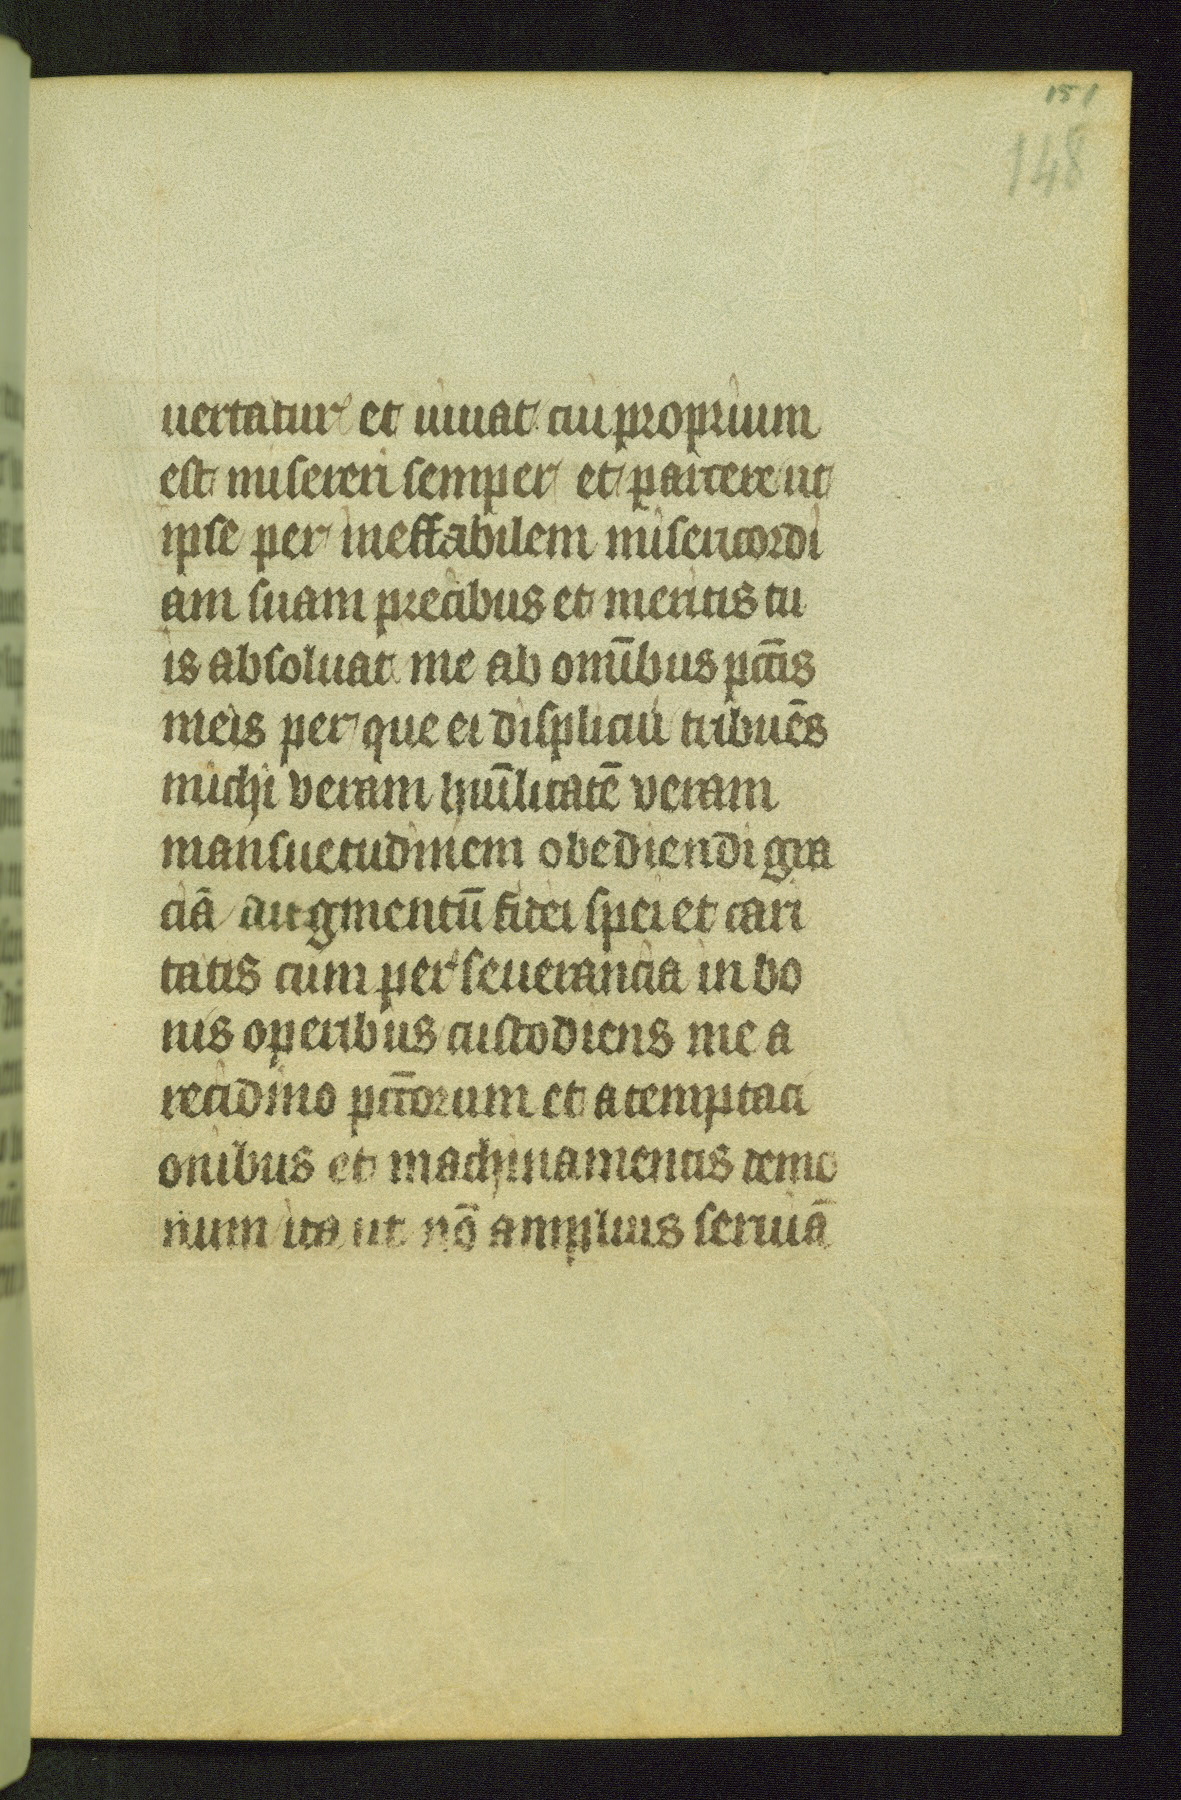 151
148
uertatur et uiuat cui proprium
est misereri semper et parcere ut
ipse per ineffabilem misericordi
am suam precibus et meritis tu
is absoluat me ab om̅ibus pctīs
meis per que ei displicui tribuēs
michi veram hūīlitatē veram
mansuetudinem obediendi gra
ciā augmentū fidei spei et cari
tatis cum perseuerancia in bo
nis operibus custodiens me a
recidiuo pctōrum et a temptaci
onibus et machinamentis demo
num ita ut nō amplius seruiā